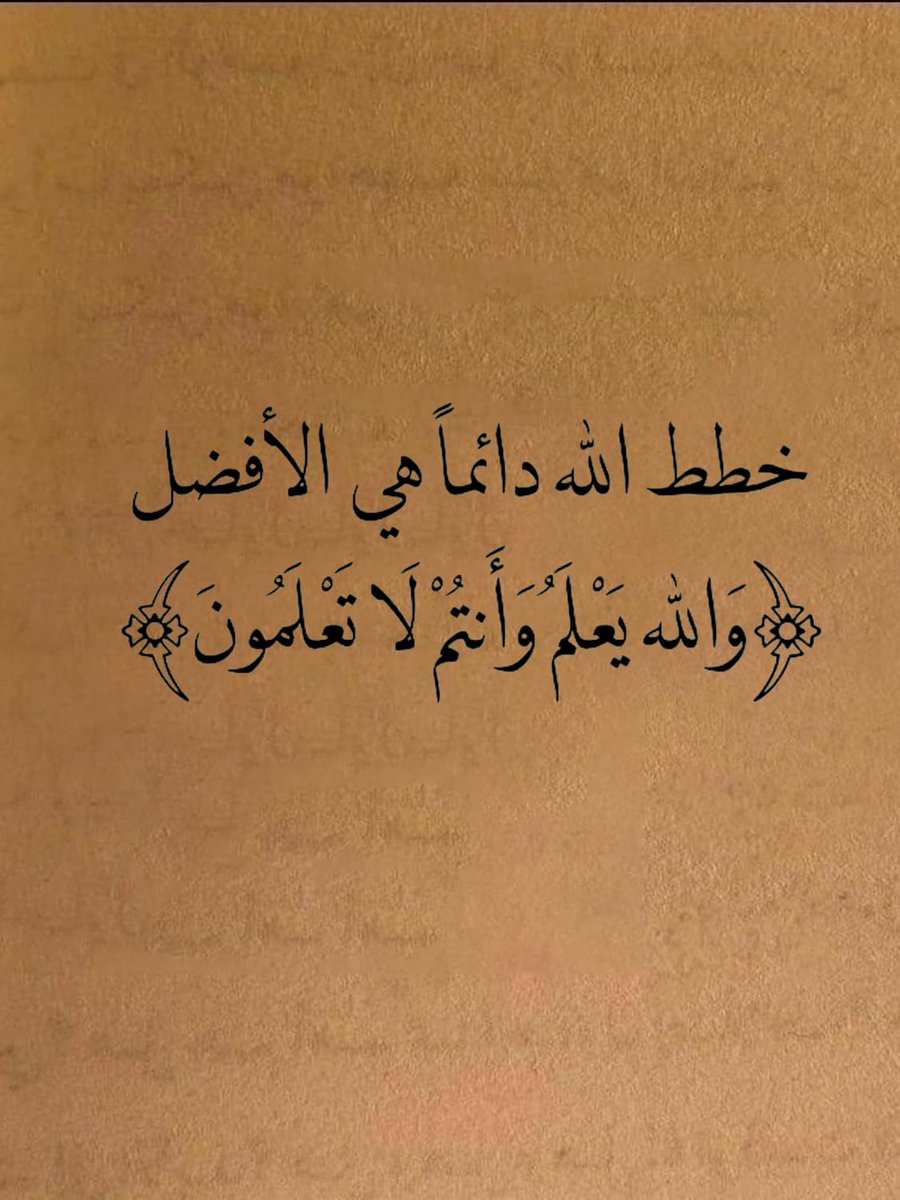 خطط الله دائماً هي الأفضل
﴿وَالله يَعْلَمُ وَأَنتُمْ لَا تَعْلَمُونَ﴾